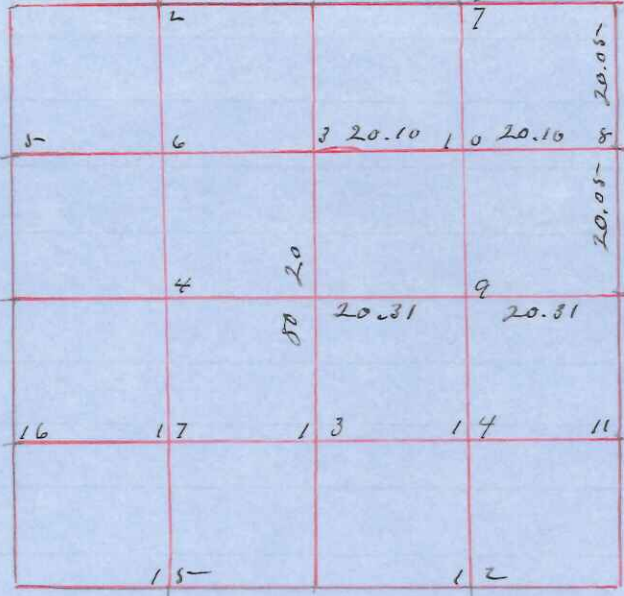 2 7
20.05
5 6 3 20.10 10 20.10 8
20.05
20
4 9
80 20.31 20.31
16 17 13 14 11
15 12